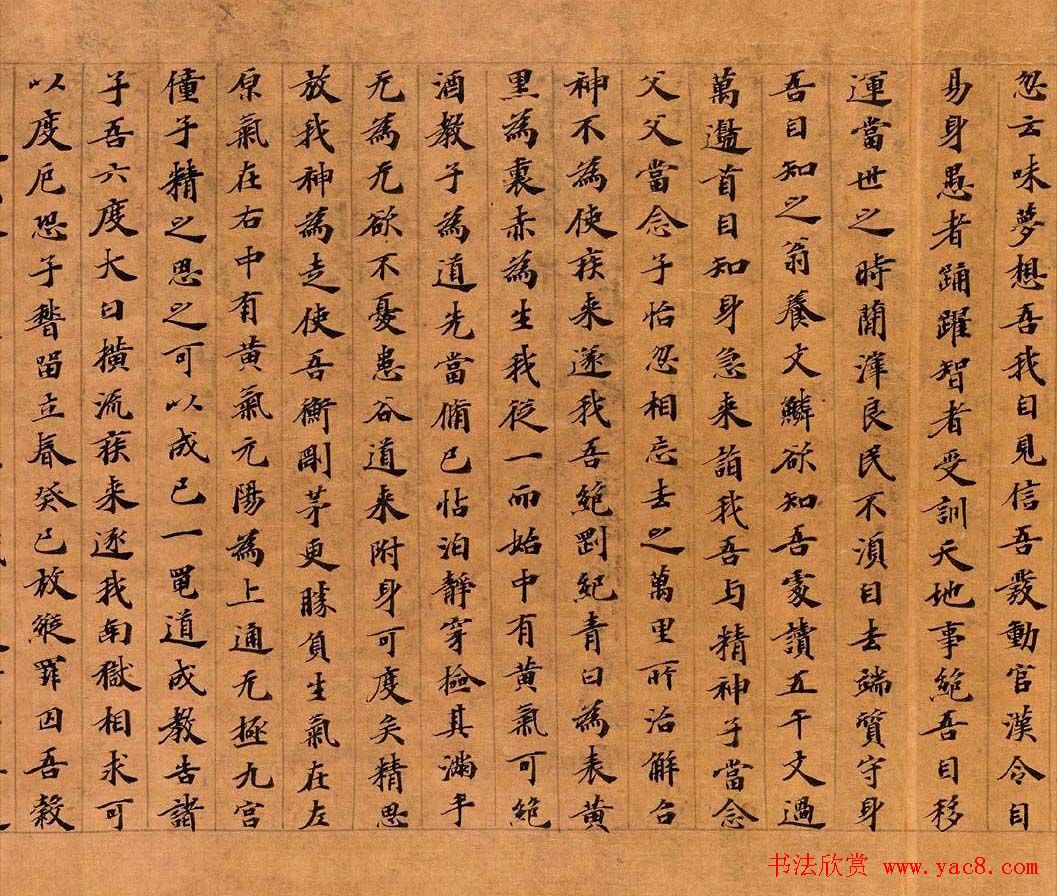 忽云味夢想吾我自見信吾發動官漢令自
易身愚者踊躍智者受訓天地事絕吾自移
運當世之時簡滓良民不湏自去端質守身
吾自知之翁養文鱗欲知吾處讀五千文過
萬遍首自知身急来詣我吾与精神子當念
父父當念子怡忽相忘去之萬里所治解台
神不為使疾来逐我吾絕剛紀青白為表黃
黑為裏赤為生我從一而始中有黃氣可絕
酒教子為道先當脩己恬泊靜穿檢其滿手
无為无欲不憂患谷道来附身可度矣精思
放我神為走使吾衡剛茅更勝負生氣在左
原氣在右中有黃氣元陽為上通无極九宮
僮子精之思之可以成己一黽道成教告諸
子吾六度大白橫流疾来逐我南獄相求可
以度厄恐子留立春癸巳放縱罪囚吾穀
书法欣赏 www.yac8.com